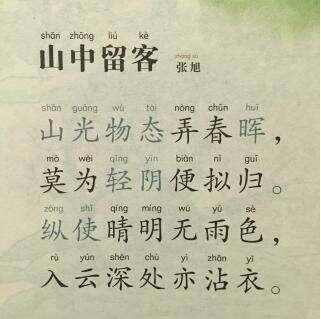 shān zhōng liú kè
山中留客
zhāng xù
张旭
shān guāng wù tài nòng chūn huī
山光物态弄春晖，
mò wèi qīng yīn biàn nǐ guī
莫为轻阴便拟归。
zòng shǐ qíng míng wú yǔ sè
纵使晴明无雨色，
rù yún shēn chù yì zhān yī
入云深处亦沾衣。